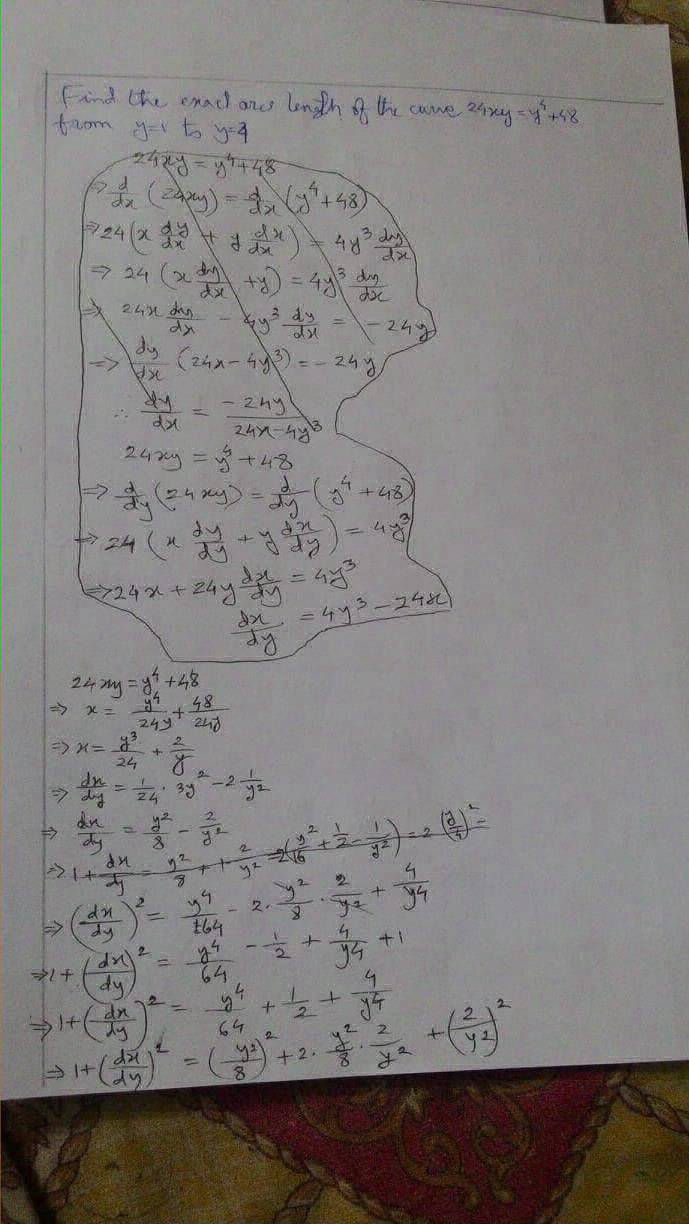 Find the exact arc length of the curve 24xy = y⁴+48
from y=1 to y=4
24xy = y⁴+48
⇒ d/dx (24xy) = d/dx (y⁴+48)
⇒ 24(x dy/dx + y dx/dx) = 4y³ dy/dx
⇒ 24 (x dy/dx + y) = 4y³ dy/dx
⇒ 24x dy/dx - 4y³ dy/dx = -24y
⇒ dy/dx (24x-4y³) = -24y
∴ dy/dx = -24y/(24x-4y³)
24xy = y⁴+48
⇒ d/dy (24xy) = d/dy (y⁴+48)
⇒ 24 (x dy/dy + y dx/dy) = 4y³
⇒ 24x + 24y dx/dy = 4y³
dx/dy = 4y³ - 24x
24xy = y⁴+48
⇒ x = y⁴/24y + 48/24y
⇒ x = y³/24 + 2/y
⇒ dx/dy = 1/24 · 3y² - 2 1/y²
⇒ dx/dy = y²/8 - 2/y²
⇒ 1+ dx/dy = y²/8 + 1 - 2/y² = 2(y²/16 + 1/2 - 1/y²) = 2 (y/4)² -
⇒ (dx/dy)² = y⁴/64 - 2· y²/8 · 2/y² + 4/y4
⇒ 1+(dx/dy)² = y⁴/64 - 1/2 + 4/y4 + 1
⇒ 1+(dx/dy)² = y⁴/64 + 1/2 + 4/y⁴
⇒ 1+(dx/dy)² = (y²/8)² + 2· y²/8 · 2/y² + (2/y²)²